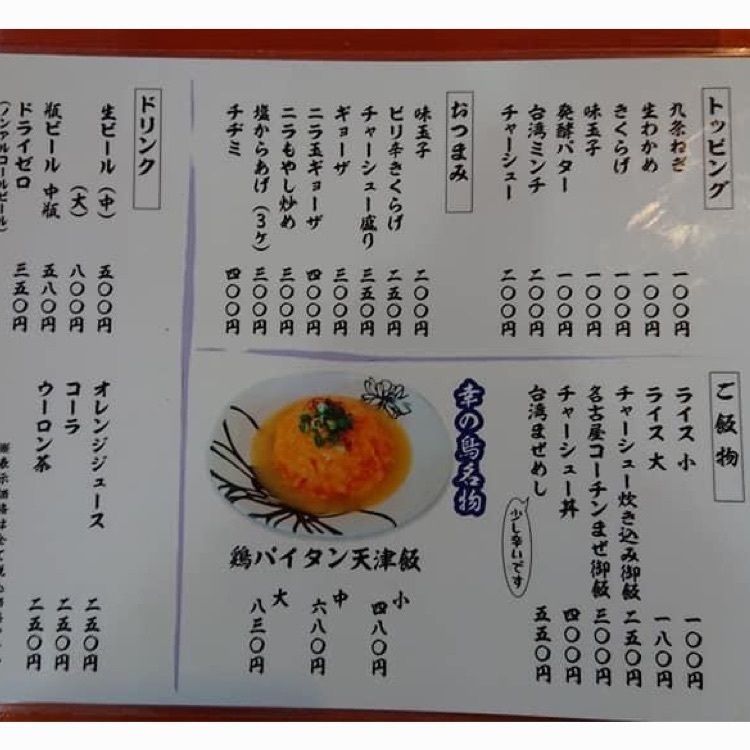 トッピング
九条ねぎ 一〇〇円
生わかめ 一〇〇円
きくらげ 一〇〇円
味玉子 一〇〇円
発酵バター 一〇〇円
台湾ミンチ 二〇〇円
チャーシュー 二〇〇円
おつまみ
味玉子 二〇〇円
ピリ辛きくらげ 二五〇円
チャーシュー盛り 三五〇円
ギョーザ 三〇〇円
ニラ玉ギョーザ 四〇〇円
ニラもやし炒め 三〇〇円
塩からあげ(3ヶ) 三〇〇円
チヂミ 四〇〇円
ドリンク
生ビール(中) 五〇〇円
(大) 八〇〇円
瓶ビール 中瓶 五八〇円
ドライゼロ 三五〇円
(ノンアルコールビール)
オレンジジュース 二五〇円
コーラ 二五〇円
ウーロン茶 二五〇円
※表示価格は全て税
ご飯物
ライス 小 一〇〇円
ライス 大 一八〇円
チャーシュー炊き込み御飯 二五〇円
名古屋コーチンまぜ御飯 三〇〇円
チャーシュー丼 四〇〇円
台湾まぜめし 五五〇円
少し辛いです
幸の鳥名物
鶏パイタン天津飯
小 四八〇円
中 六八〇円
大 八三〇円